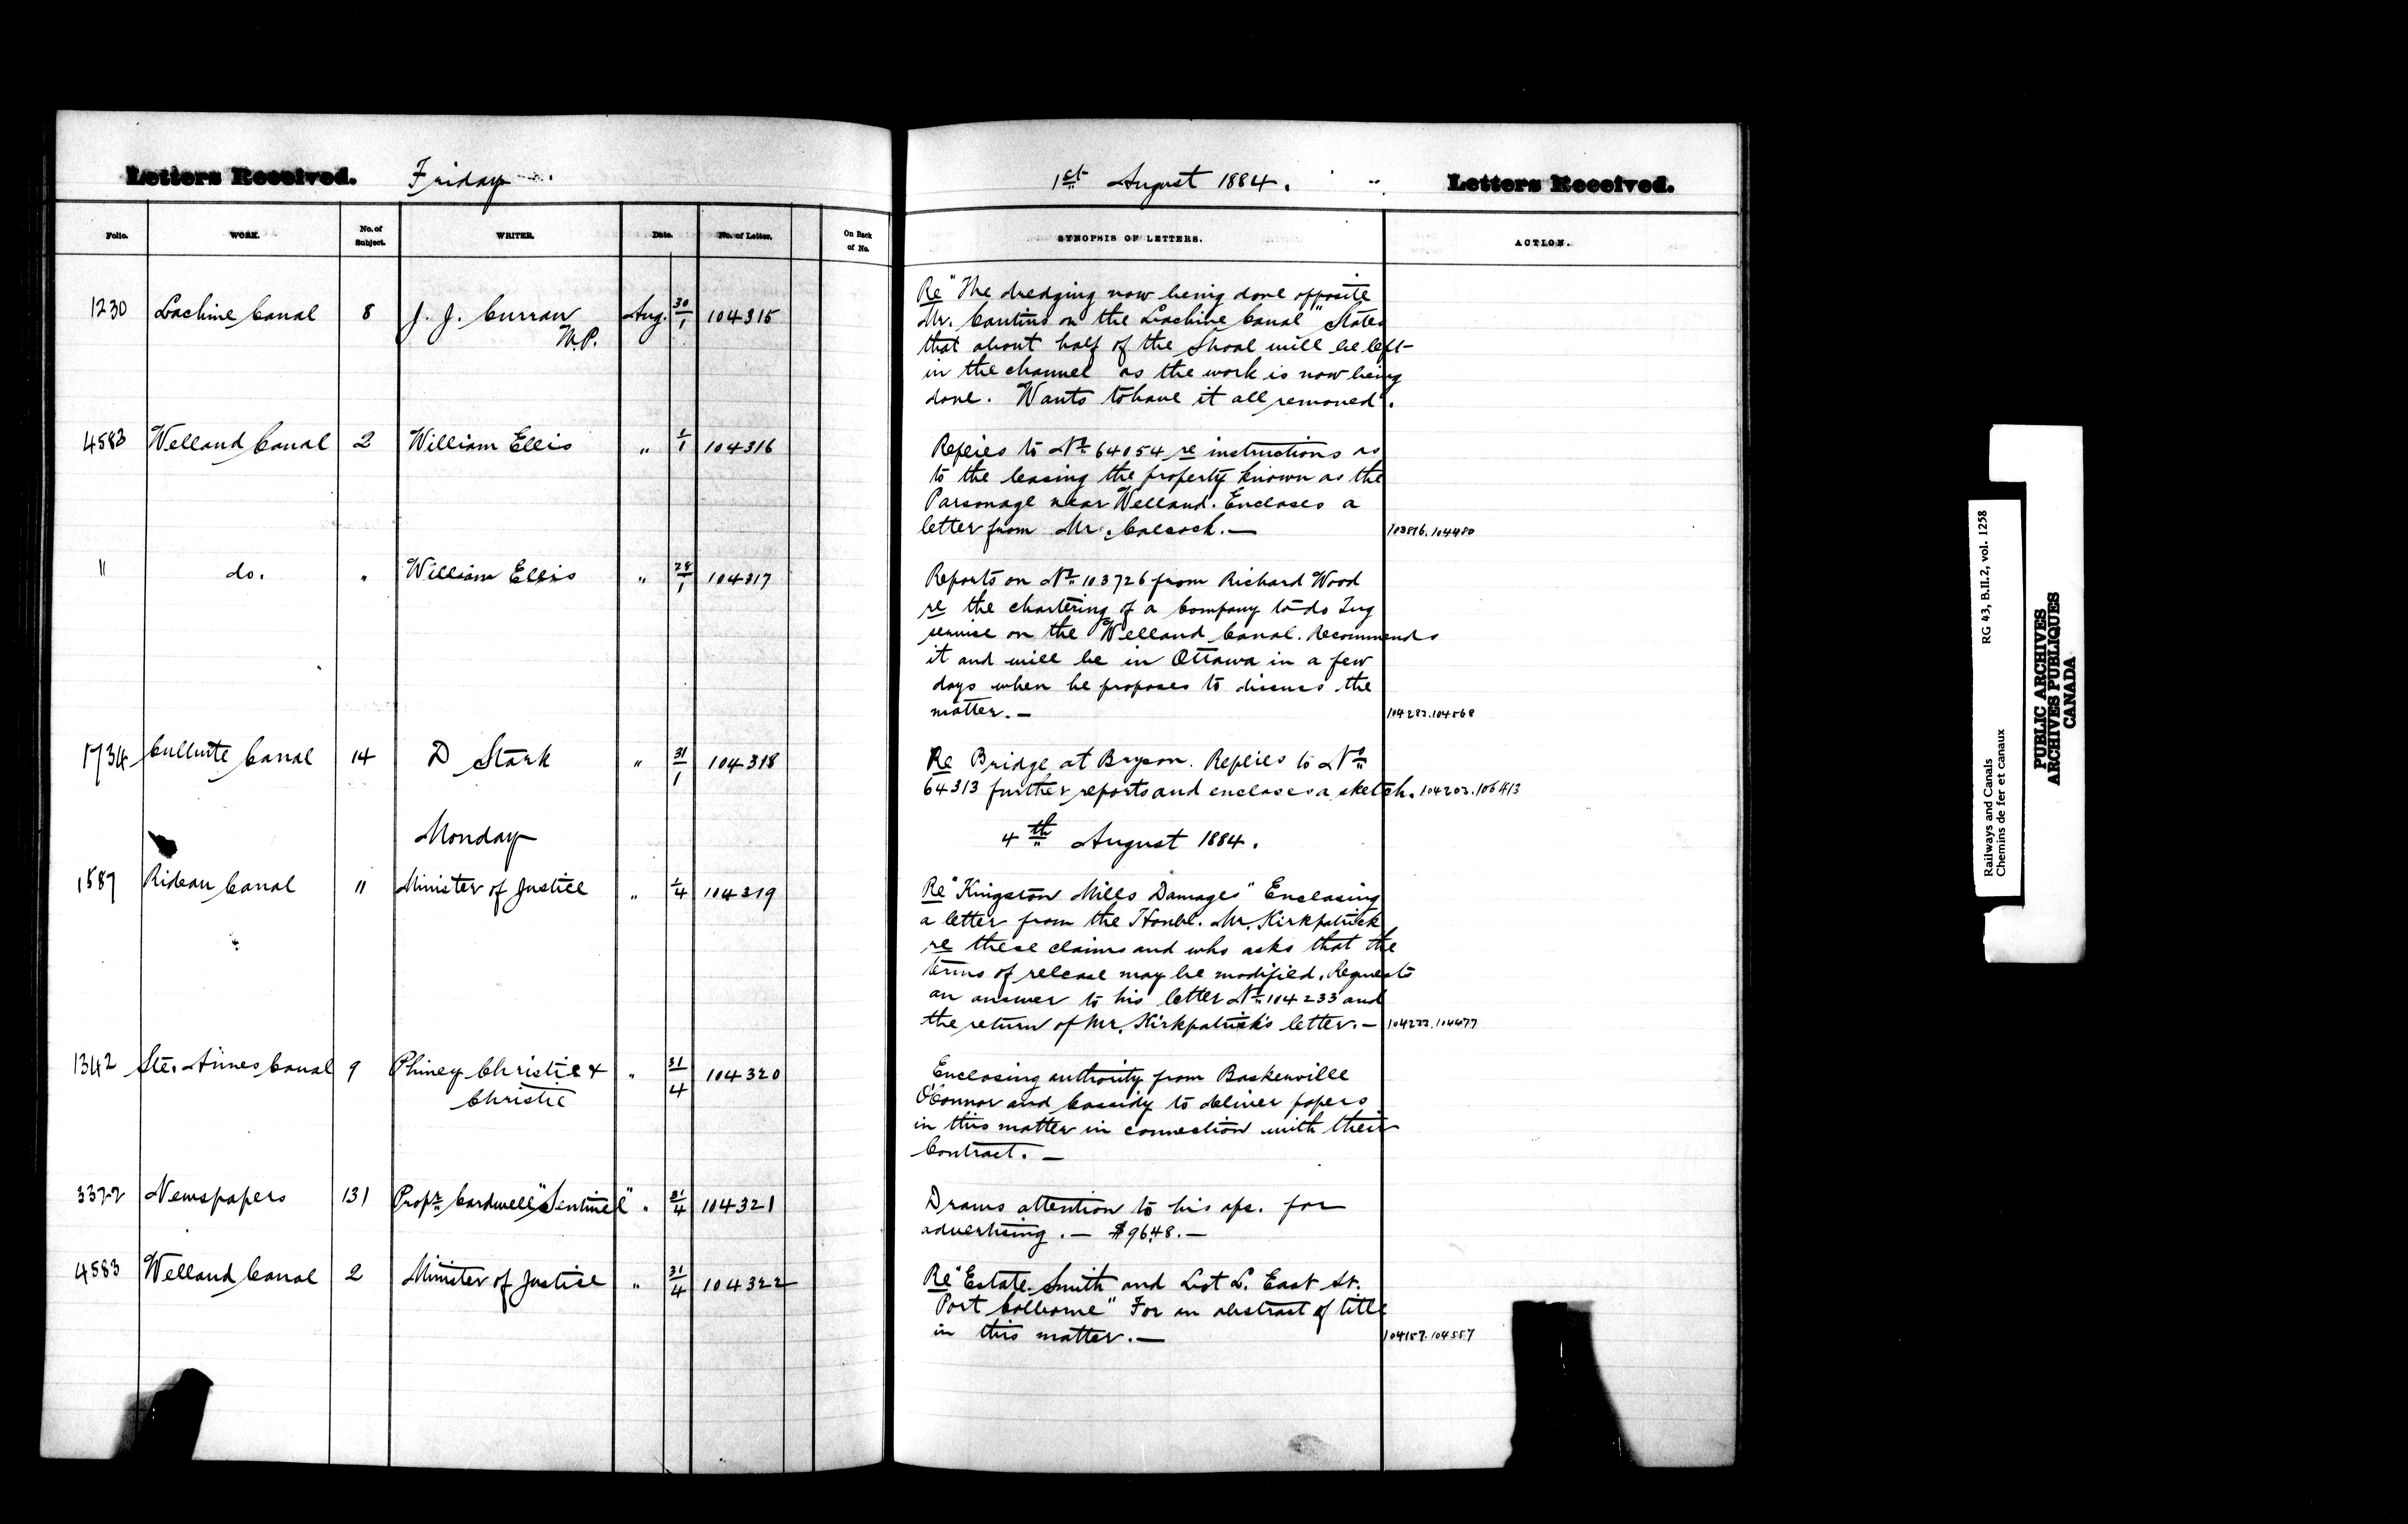 Letters Received. Friday
1st August 1884. Letters Received.
Folio. WORK. No. of Subject. WRITER. Date. No. of Letter. On Back of No.
SYNOPSIS OF LETTERS. ACTION.
1230 Lachine Canal 8 J. J. Curran M.P. Aug. 30/1 104315
Re "The dredging now being done opposite
Mr. Cantins on the Lachine Canal" States
that about half of the Shoal will be left
in the channel as the work is now being
done. Wants to have it all removed.
4583 Welland Canal 2 William Ellis " 1/1 104316
Replies to No 64054 re instructions as
to the leasing the property known as the
Parsonage near Welland. Encloses a
letter from Mr. Colcock.—
103816.104480
" do. " William Ellis " 28/1 104317
Reports on No 103726 from Richard Wood
re the chartering of a Company to do Tug
service on the Welland Canal. Recommends
it and will be in Ottawa in a few
days when he proposes to discuss the
matter.—
104283.104568
1734 Cullbute Canal 14 D Stark " 31/1 104318
Re Bridge at Bryson. Replies to No
64313 further reports and encloses a sketch. 104203.106413
Monday
4th August 1884.
1587 Rideau Canal 11 Minister of Justice " 1/4 104319
Re "Kingston Mills Damages" Enclosing
a letter from the Honbl. Mr. Kirkpatrick
re these claims and who asks that the
terms of release may be modified. Requests
an answer to his letter No 104233 and
the return of Mr. Kirkpatrick's letter.—
104233.104477
1342 Ste. Annes Canal 9 Phiney Christie & " 31/4 104320
Christie
Enclosing authority from Baskerville
O'Connor and Cassidy to deliver papers
in this matter in connection with their
Contract.—
3322 Newspapers 131 Propr. Cardwell "Sentinel" " 31/4 104321
Draws attention to his a/c. for
advertising.— $96.48.—
4583 Welland Canal 2 Minister of Justice " 31/4 104322
Re "Estate Smith and Lot L. East St.
Port Colborne" For an abstract of title
in this matter.—
104157.104557
Railways and Canals RG 43, B.II.2, vol. 1258
Chemins de fer et canaux
PUBLIC ARCHIVES
ARCHIVES PUBLIQUES
CANADA